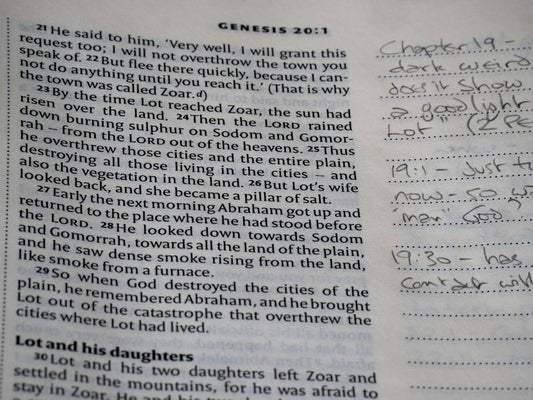 GENESIS 20:1
21 He said to him, ‘Very well, I will grant this
request too; I will not overthrow the town you
speak of. 22 But flee there quickly, because I can-
not do anything until you reach it.’ (That is why
the town was called Zoar.d)
23 By the time Lot reached Zoar, the sun had
risen over the land. 24 Then the LORD rained
down burning sulphur on Sodom and Gomor-
rah – from the LORD out of the heavens. 25 Thus
he overthrew those cities and the entire plain,
destroying all those living in the cities – and
also the vegetation in the land. 26 But Lot’s wife
looked back, and she became a pillar of salt.
27 Early the next morning Abraham got up and
returned to the place where he had stood before
the LORD. 28 He looked down towards Sodom
and Gomorrah, towards all the land of the plain,
and he saw dense smoke rising from the land,
like smoke from a furnace.
29 So when God destroyed the cities of the
plain, he remembered Abraham, and he brought
Lot out of the catastrophe that overthrew the
cities where Lot had lived.
Lot and his daughters
30 Lot and his two daughters left Zoar and
settled in the mountains, for he was afraid to
stay in Zoar. He and his two
Chapter 19 –
dark weird
doesn't show
a good light
Lot" (2 Pe
19:1 – Just
now – so
"men" God?
19:30 – has